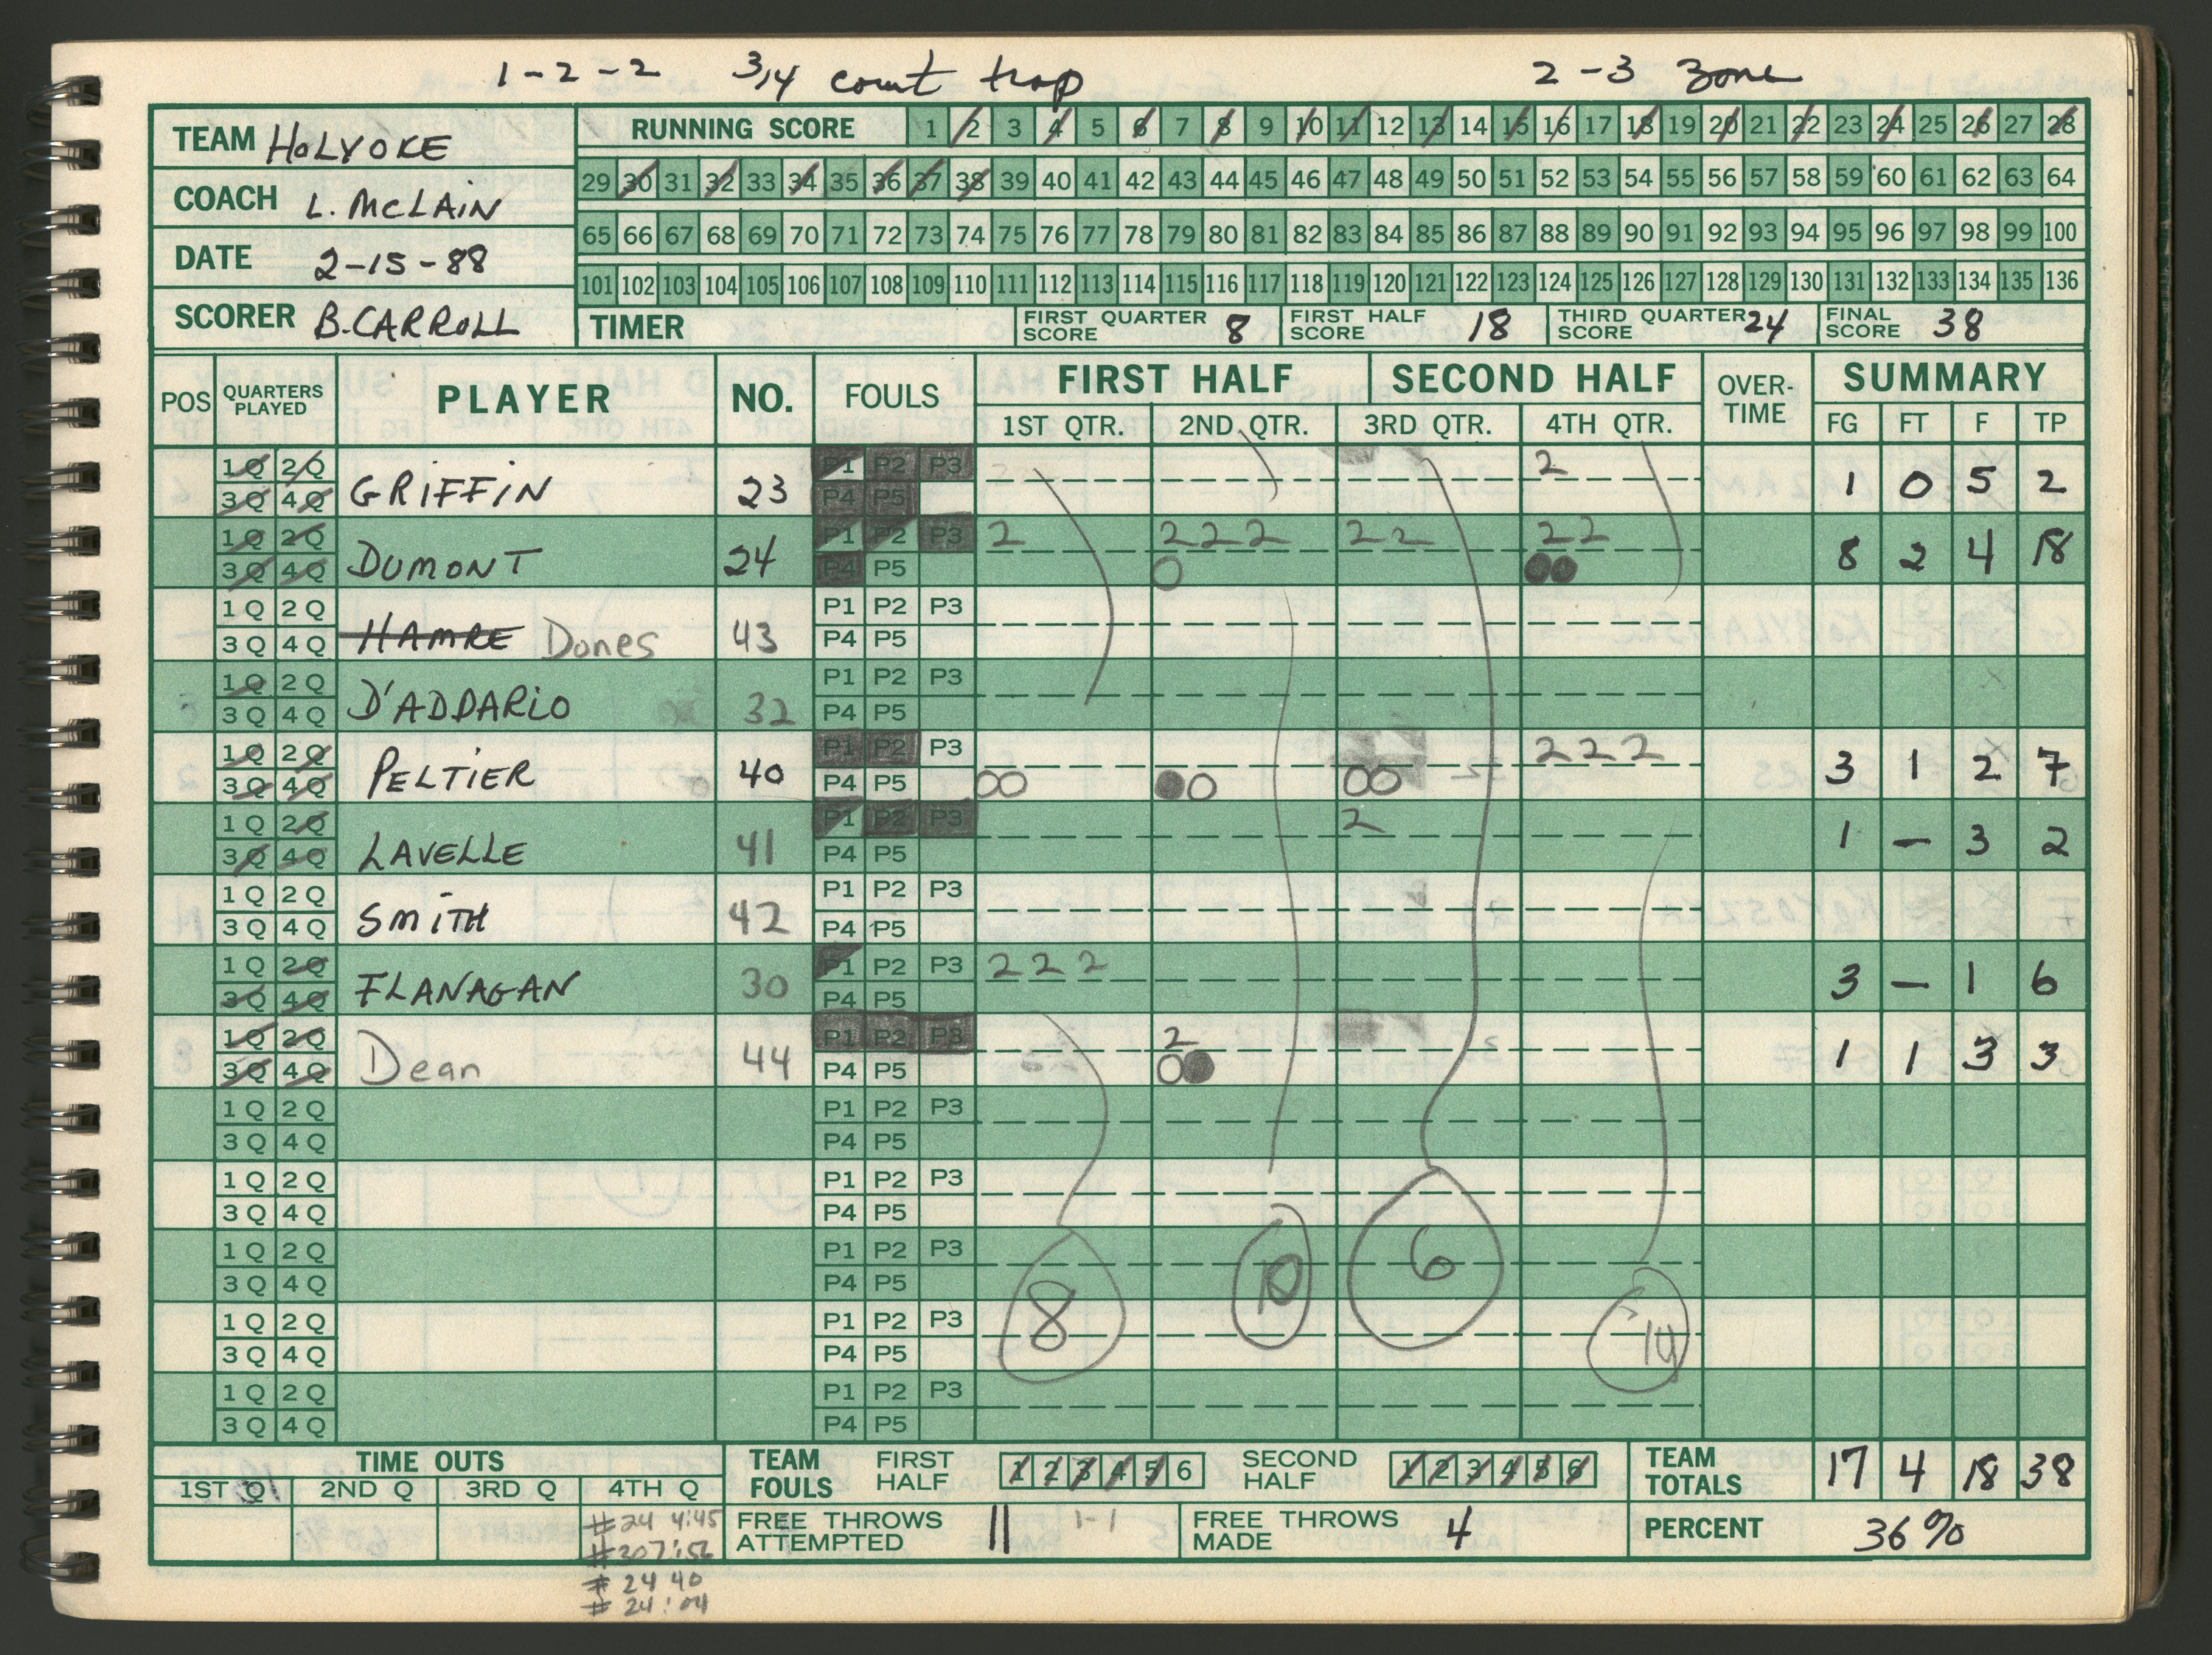 1-2-2 3/4 court trap 2-3 zone
TEAM HOLYOKE
COACH L. McLAiN
DATE 2-15-88
SCORER B. CARROLL
RUNNING SCORE 1 2 3 4 5 6 7 8 9 10 11 12 13 14 15 16 17 18 19 20 21 22 23 24 25 26 27 28
29 30 31 32 33 34 35 36 37 38 39 40 41 42 43 44 45 46 47 48 49 50 51 52 53 54 55 56 57 58 59 60 61 62 63 64
65 66 67 68 69 70 71 72 73 74 75 76 77 78 79 80 81 82 83 84 85 86 87 88 89 90 91 92 93 94 95 96 97 98 99 100
101 102 103 104 105 106 107 108 109 110 111 112 113 114 115 116 117 118 119 120 121 122 123 124 125 126 127 128 129 130 131 132 133 134 135 136
TIMER FIRST QUARTER SCORE 8 FIRST HALF SCORE 18 THIRD QUARTER SCORE 24 FINAL SCORE 38
POS QUARTERS PLAYED PLAYER NO. FOULS FIRST HALF SECOND HALF OVER-TIME SUMMARY
1ST QTR. 2ND QTR. 3RD QTR. 4TH QTR. FG FT F TP
1Q 2Q P1 P2 P3 2
3Q 4Q GRiFFiN 23 P4 P5 1 0 5 2
1Q 2Q P1 P2 P3 2 222 22 22
3Q 4Q DUMONT 24 P4 P5 8 2 4 18
1Q 2Q P1 P2 P3
3Q 4Q HAMRE Dones 43 P4 P5
1Q 2Q P1 P2 P3
3Q 4Q D'ADDARiO 32 P4 P5
1Q 2Q P1 P2 P3 222
3Q 4Q PELTiER 40 P4 P5 3 1 2 7
1Q 2Q P1 P2 P3 2
3Q 4Q LAVELLE 41 P4 P5 1 – 3 2
1Q 2Q P1 P2 P3
3Q 4Q SMiTH 42 P4 P5
1Q 2Q P1 P2 P3 222
3Q 4Q FLANAGAN 30 P4 P5 3 – 1 6
1Q 2Q P1 P2 P3 2
3Q 4Q Dean 44 P4 P5 1 1 3 3
1Q 2Q P1 P2 P3
3Q 4Q P4 P5
1Q 2Q P1 P2 P3
3Q 4Q P4 P5
1Q 2Q P1 P2 P3
3Q 4Q P4 P5
1Q 2Q P1 P2 P3
3Q 4Q P4 P5
1Q 2Q P1 P2 P3
3Q 4Q P4 P5
8 10 6 14
TIME OUTS
1ST Q 2ND Q 3RD Q 4TH Q
#24 4:45
#30 7:56
#24 40
#24 :04
TEAM FOULS FIRST HALF 1 2 3 4 5 6 SECOND HALF 1 2 3 4 5 6
FREE THROWS ATTEMPTED 11 1-1 FREE THROWS MADE 4
TEAM TOTALS 17 4 18 38
PERCENT 36%